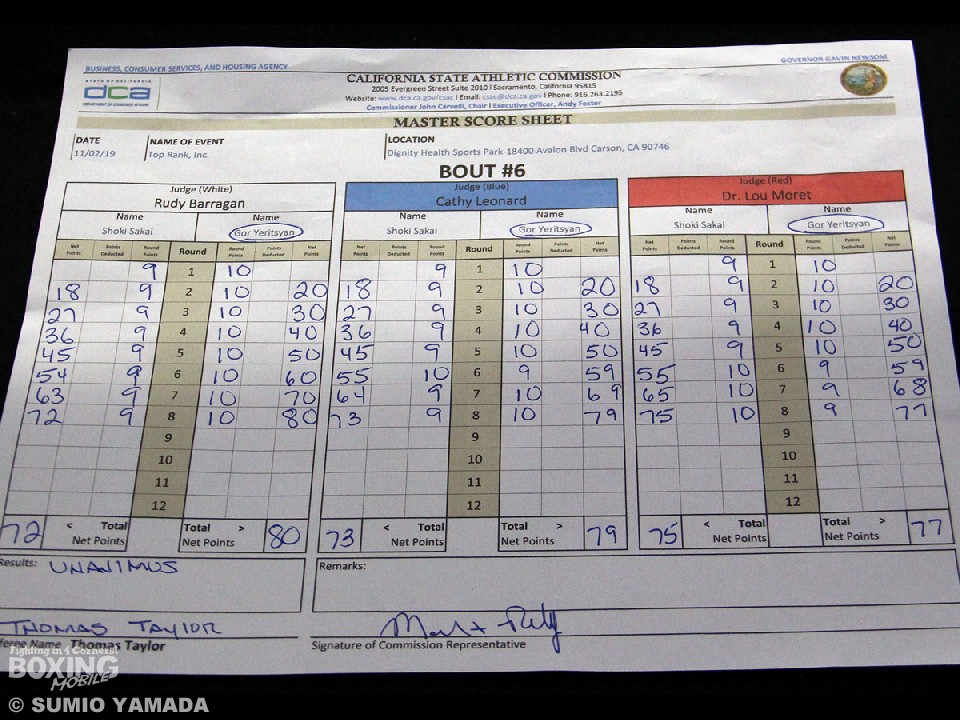 BUSINESS, CONSUMER SERVICES, AND HOUSING AGENCY
GOVERNOR GAVIN NEWSOM
STATE OF CALIFORNIA
dca
DEPARTMENT OF CONSUMER AFFAIRS
CALIFORNIA STATE ATHLETIC COMMISSION
2005 Evergreen Street Suite 2010 | Sacramento, California 95815
Website: www.dca.ca.gov/csac | Email: csac@dca.ca.gov | Phone: 916.263.2195
Commissioner John Carvelli, Chair | Executive Officer, Andy Foster
MASTER SCORE SHEET
DATE NAME OF EVENT LOCATION
11/02/19 Top Rank, Inc. Dignity Health Sports Park-18400 Avalon Blvd Carson, CA 90746
BOUT #6
Judge (White) Judge (Blue) Judge (Red)
Rudy Barragan Cathy Leonard Dr. Lou Moret
Name Name Name Name Name Name
Shoki Sakai Gor Yeritsyan Shoki Sakai Gor Yeritsyan Shoki Sakai Gor Yeritsyan
Net Points Points Deducted Round Points Round Round Points Points Deducted Net Points Net Points Points Deducted Round Points Round Round Points Points Deducted Net Points Net Points Points Deducted Round Points Round Round Points Points Deducted Net Points
9 1 10 9 1 10 9 1 10
18 9 2 10 20 18 9 2 10 20 18 9 2 10 20
27 9 3 10 30 27 9 3 10 30 27 9 3 10 30
36 9 4 10 40 36 9 4 10 40 36 9 4 10 40
45 9 5 10 50 45 9 5 10 50 45 9 5 10 50
54 9 6 10 60 55 10 6 9 59 55 10 6 9 59
63 9 7 10 70 64 9 7 10 69 65 10 7 9 68
72 9 8 10 80 73 9 8 10 79 75 10 8 9 77
9 9 9
10 10 10
11 11 11
12 12 12
72 < Total Net Points Total > Net Points 80 73 < Total Net Points Total > Net Points 79 75 < Total Net Points Total > Net Points 77
Results: UNANIMUS Remarks:
THOMAS TAYLOR
feree Name Thomas Taylor Signature of Commission Representative
Fighting in 4 Corners!
BOXING
MOBILE
© SUMIO YAMADA